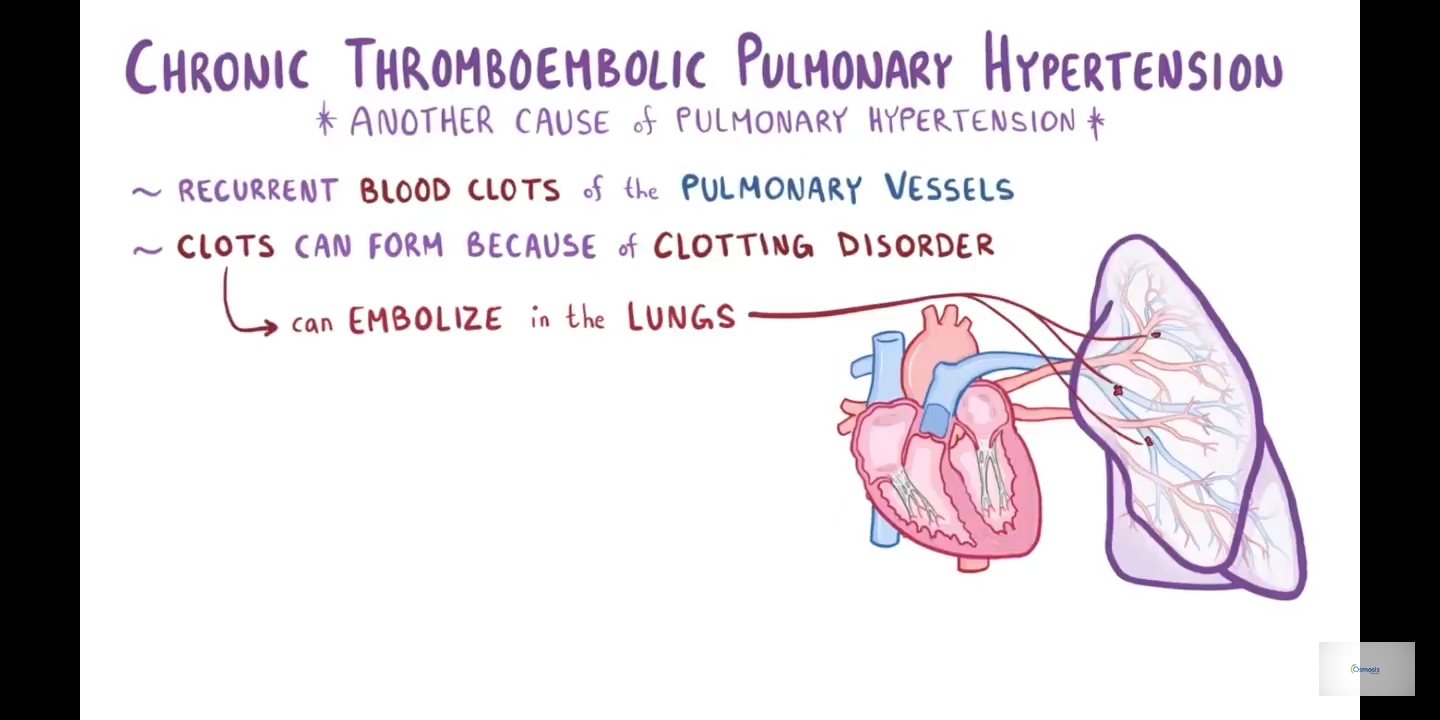 CHRONIC THROMBOEMBOLIC PULMONARY HYPERTENSION
* ANOTHER CAUSE of PULMONARY HYPERTENSION *
~ RECURRENT BLOOD CLOTS of the PULMONARY VESSELS
~ CLOTS CAN FORM BECAUSE of CLOTTING DISORDER
can EMBOLIZE in the LUNGS
Osmosis